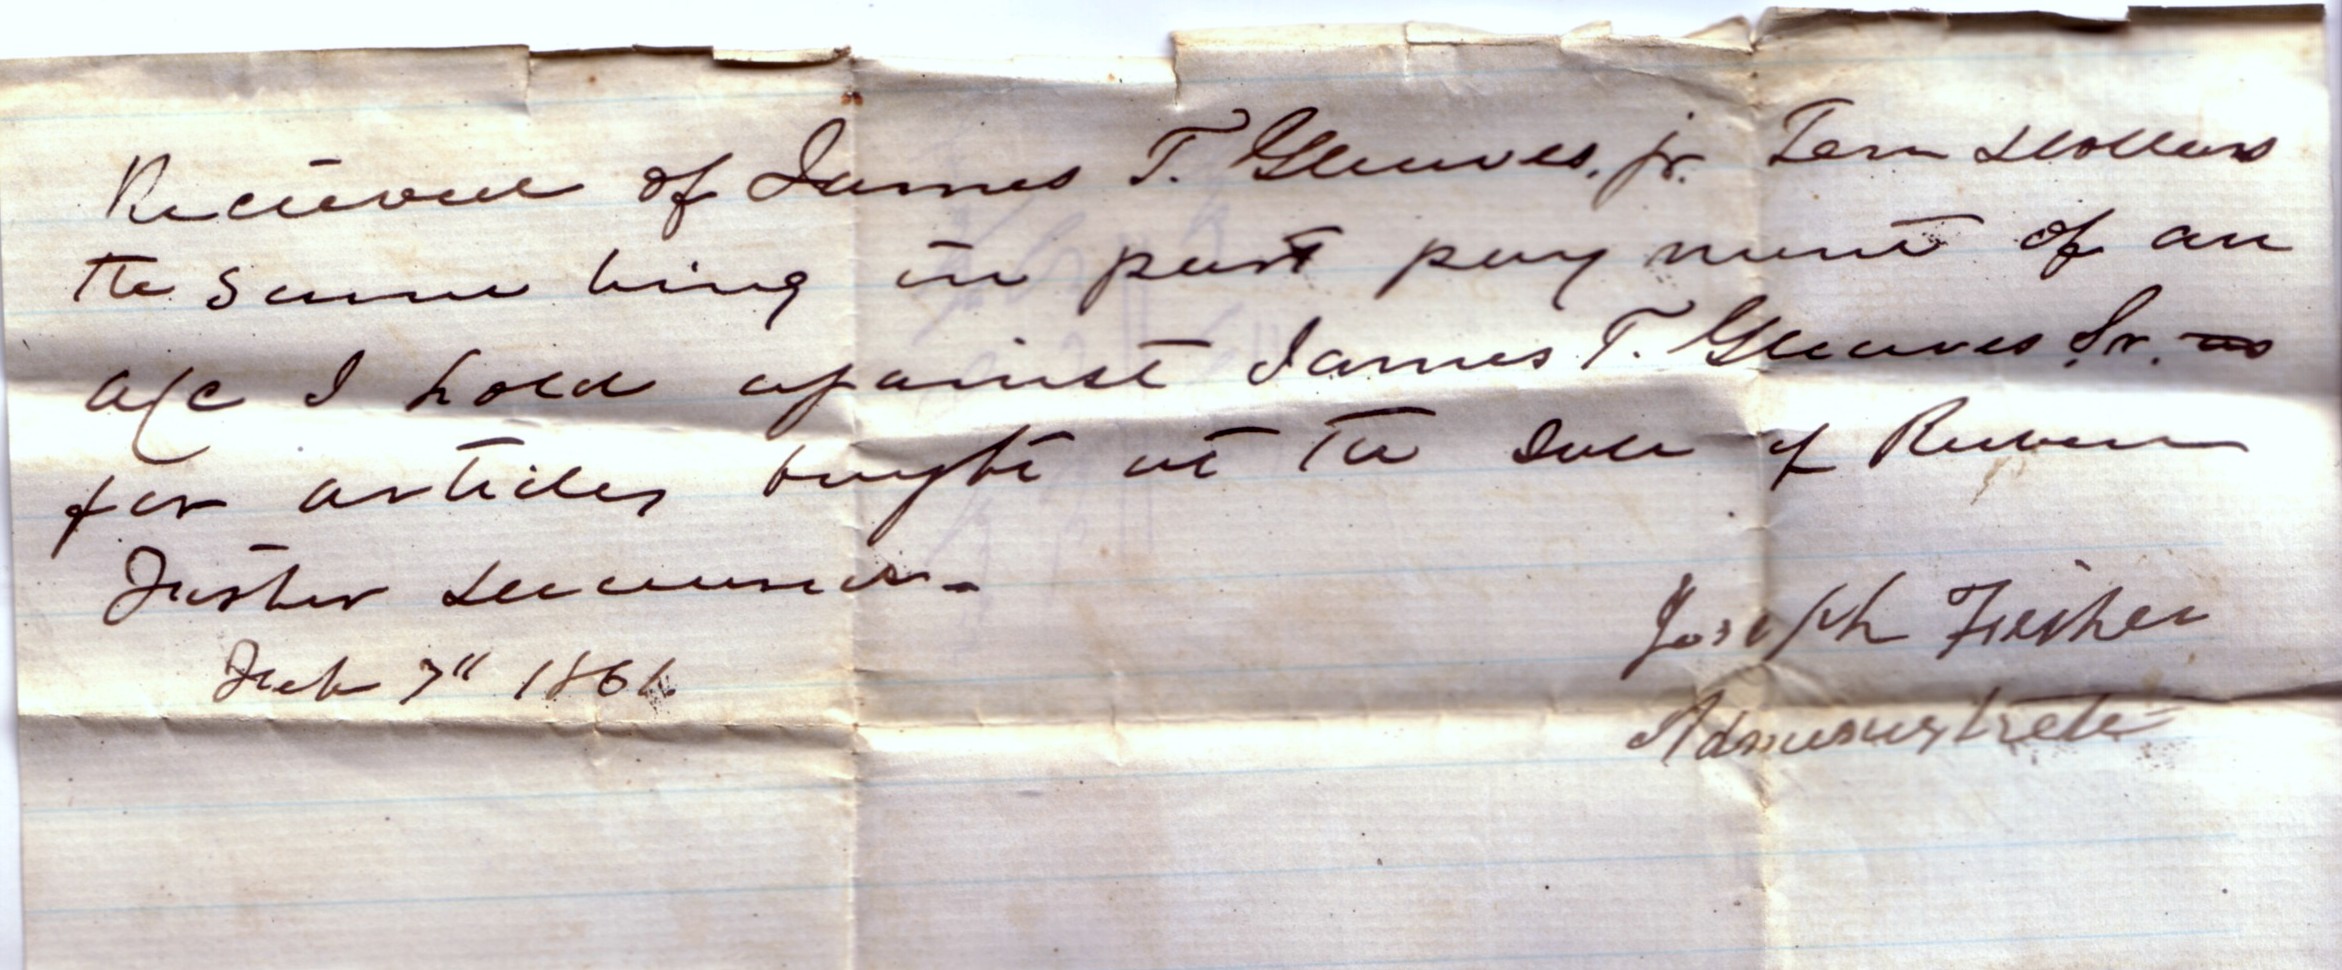 Recieved of James T. Gleaves, jr. Ten Dollars
the same being in part payment of an
a/c I hold against James T. Gleaves, Sr.
for articles bought at the sale of Reuben
Fisher deceased.
Feb 7" 186
Joseph Fisher
Administrator